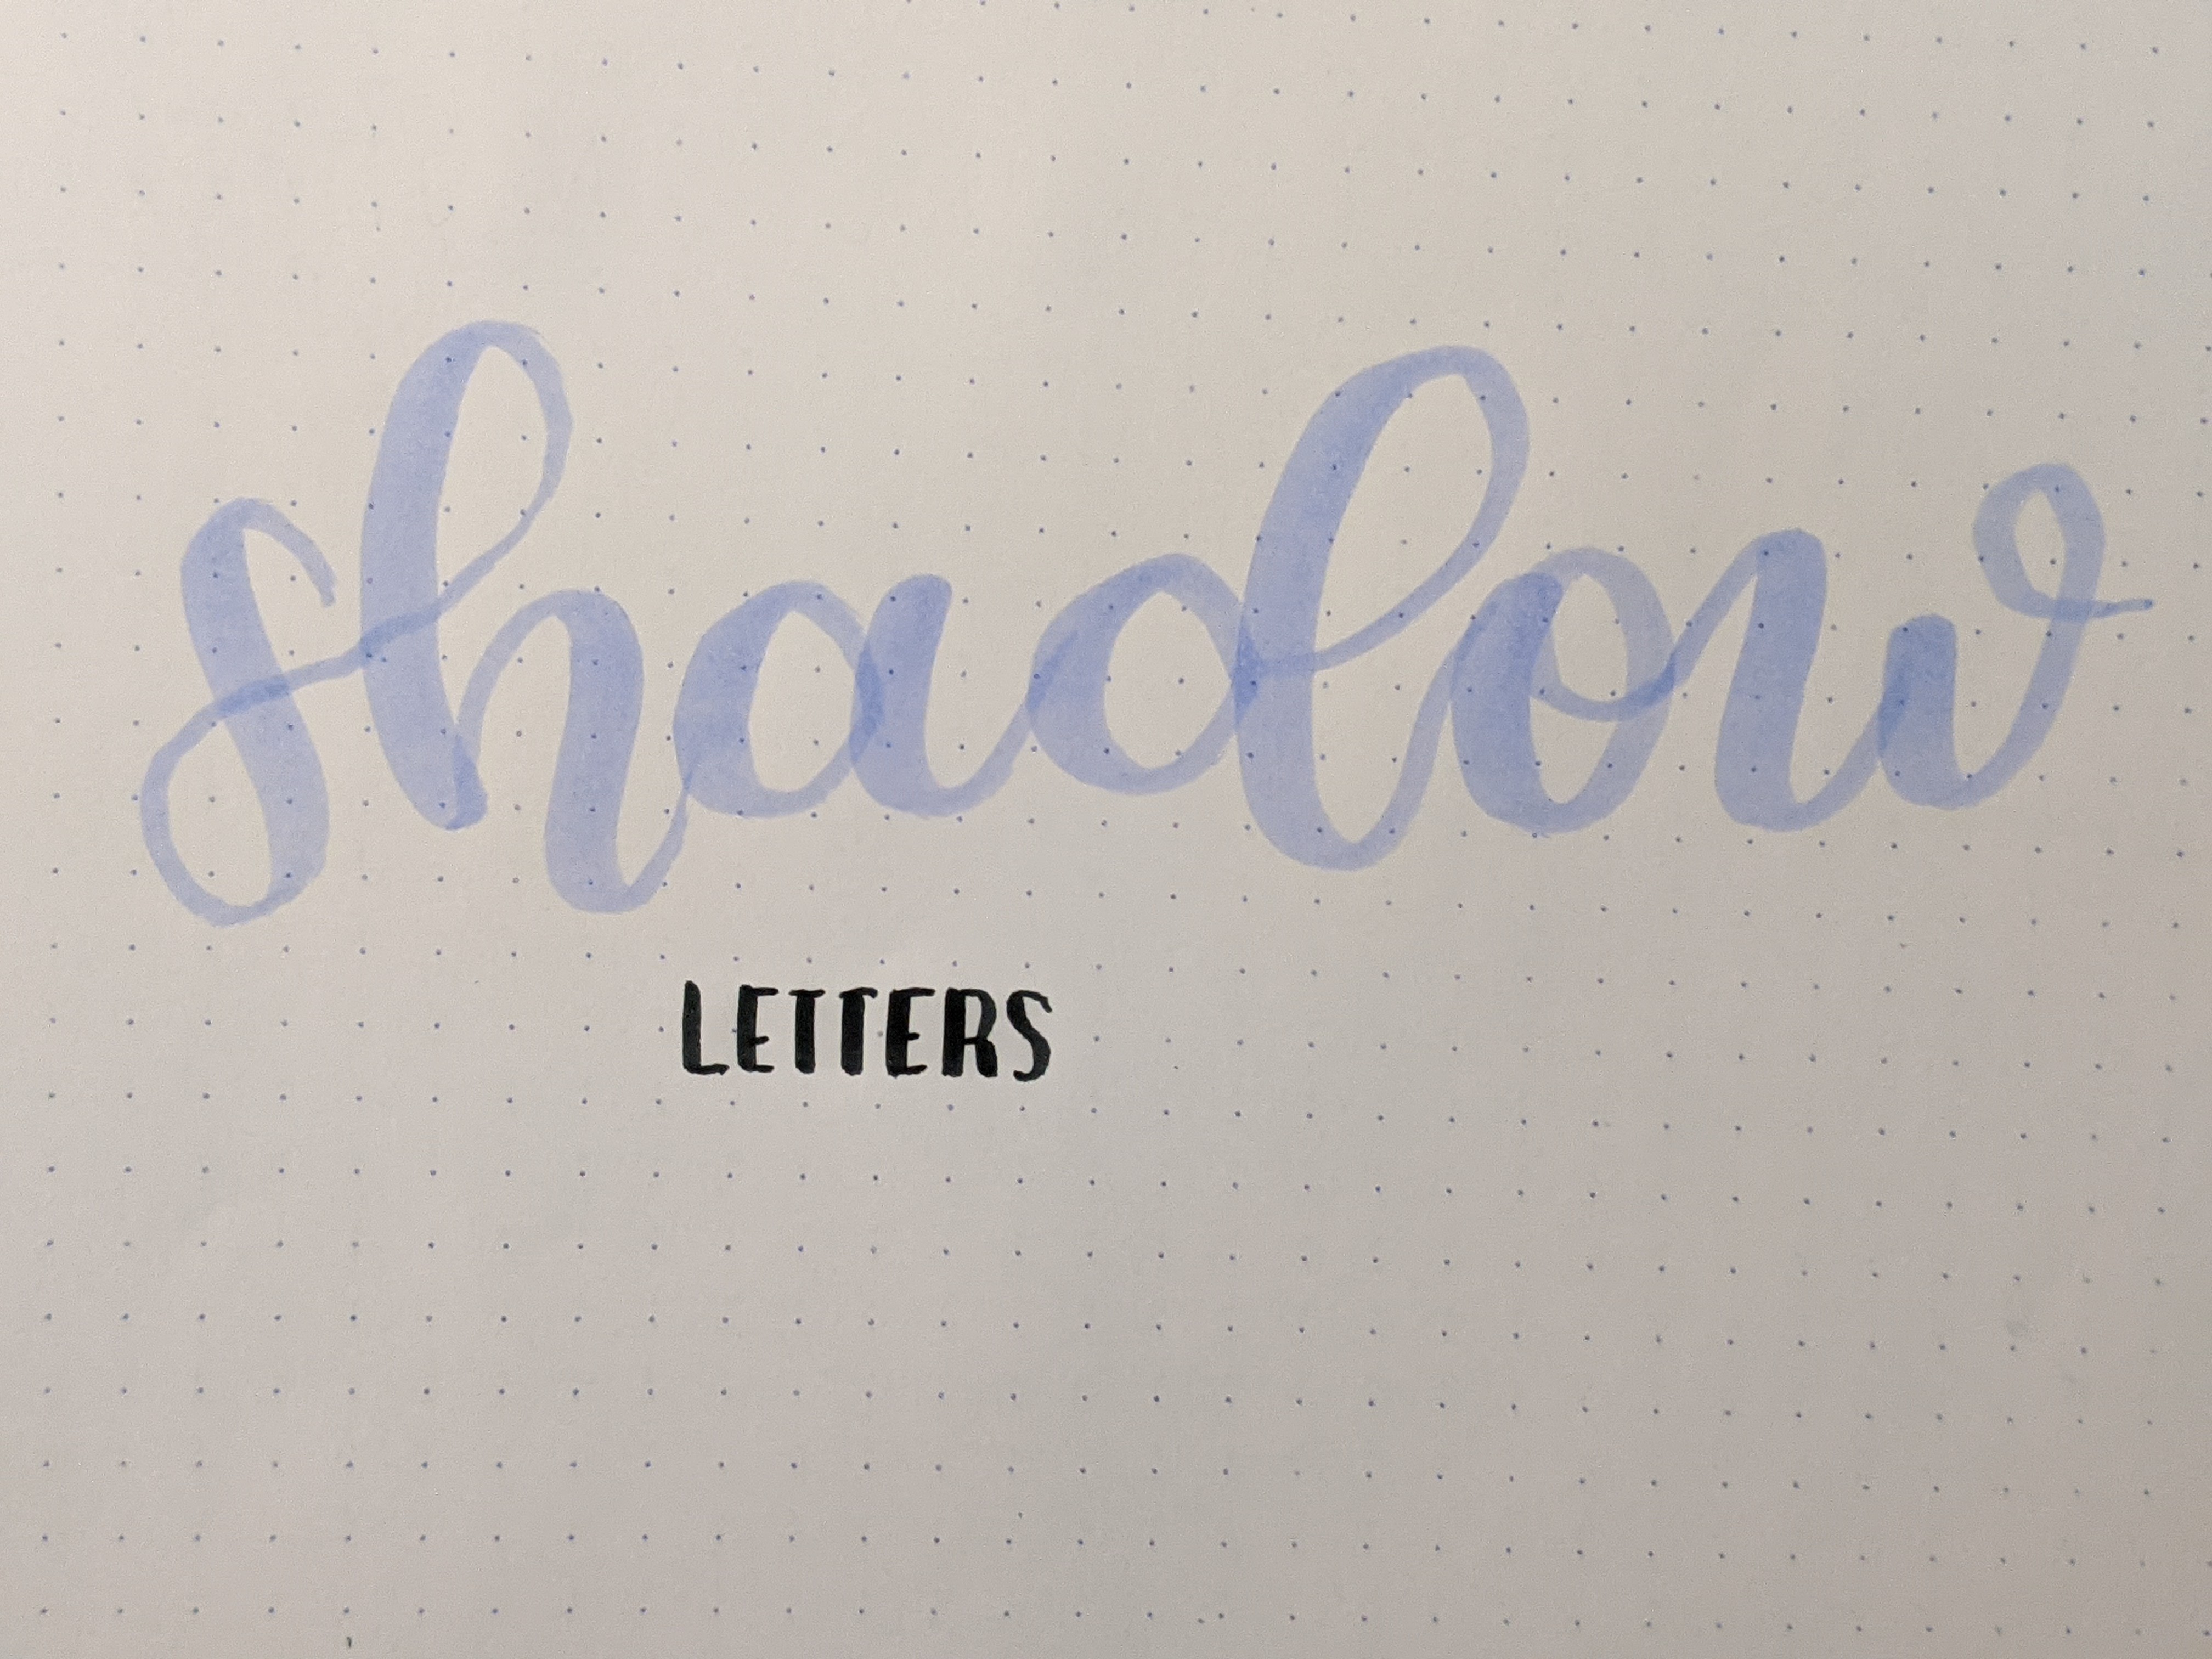 shadow
LETTERS